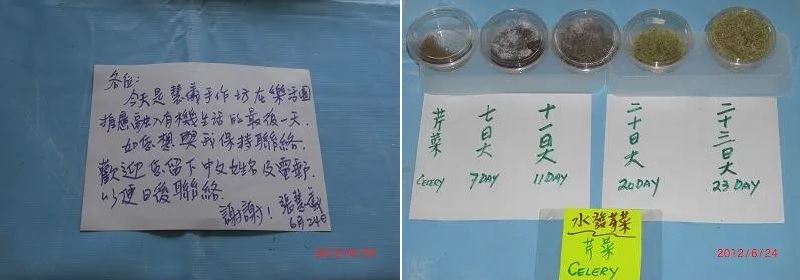 各位:
今天是慧儀手作坊在樂活園
融入有機生活的最後一天.
如您想與我保持聯絡.
歡迎您留下中文姓名及電郵.
以便日後聯絡.
謝謝! 張慧儀
6月24日
芹菜 七日大 十一日大 二十日大 二十三日大
CELERY 7DAY 11DAY 20DAY 23DAY
水發芽菜
芹菜
CELERY
2012/6/24